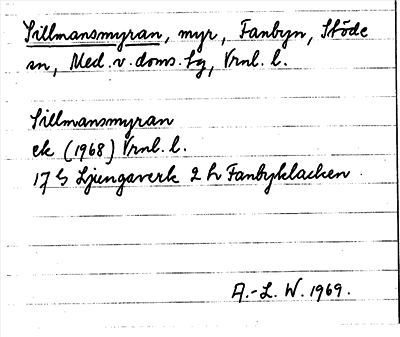 Sillmansmyran, myr, Fanbyn, Stöde
sn, Med. v. doms. fg, Vrnl. l.
Sillmansmyran
ek (1968) Vrnl. l.
17 G Ljungaverk 2 h Fanbyklacken
A.-L. W. 1969.